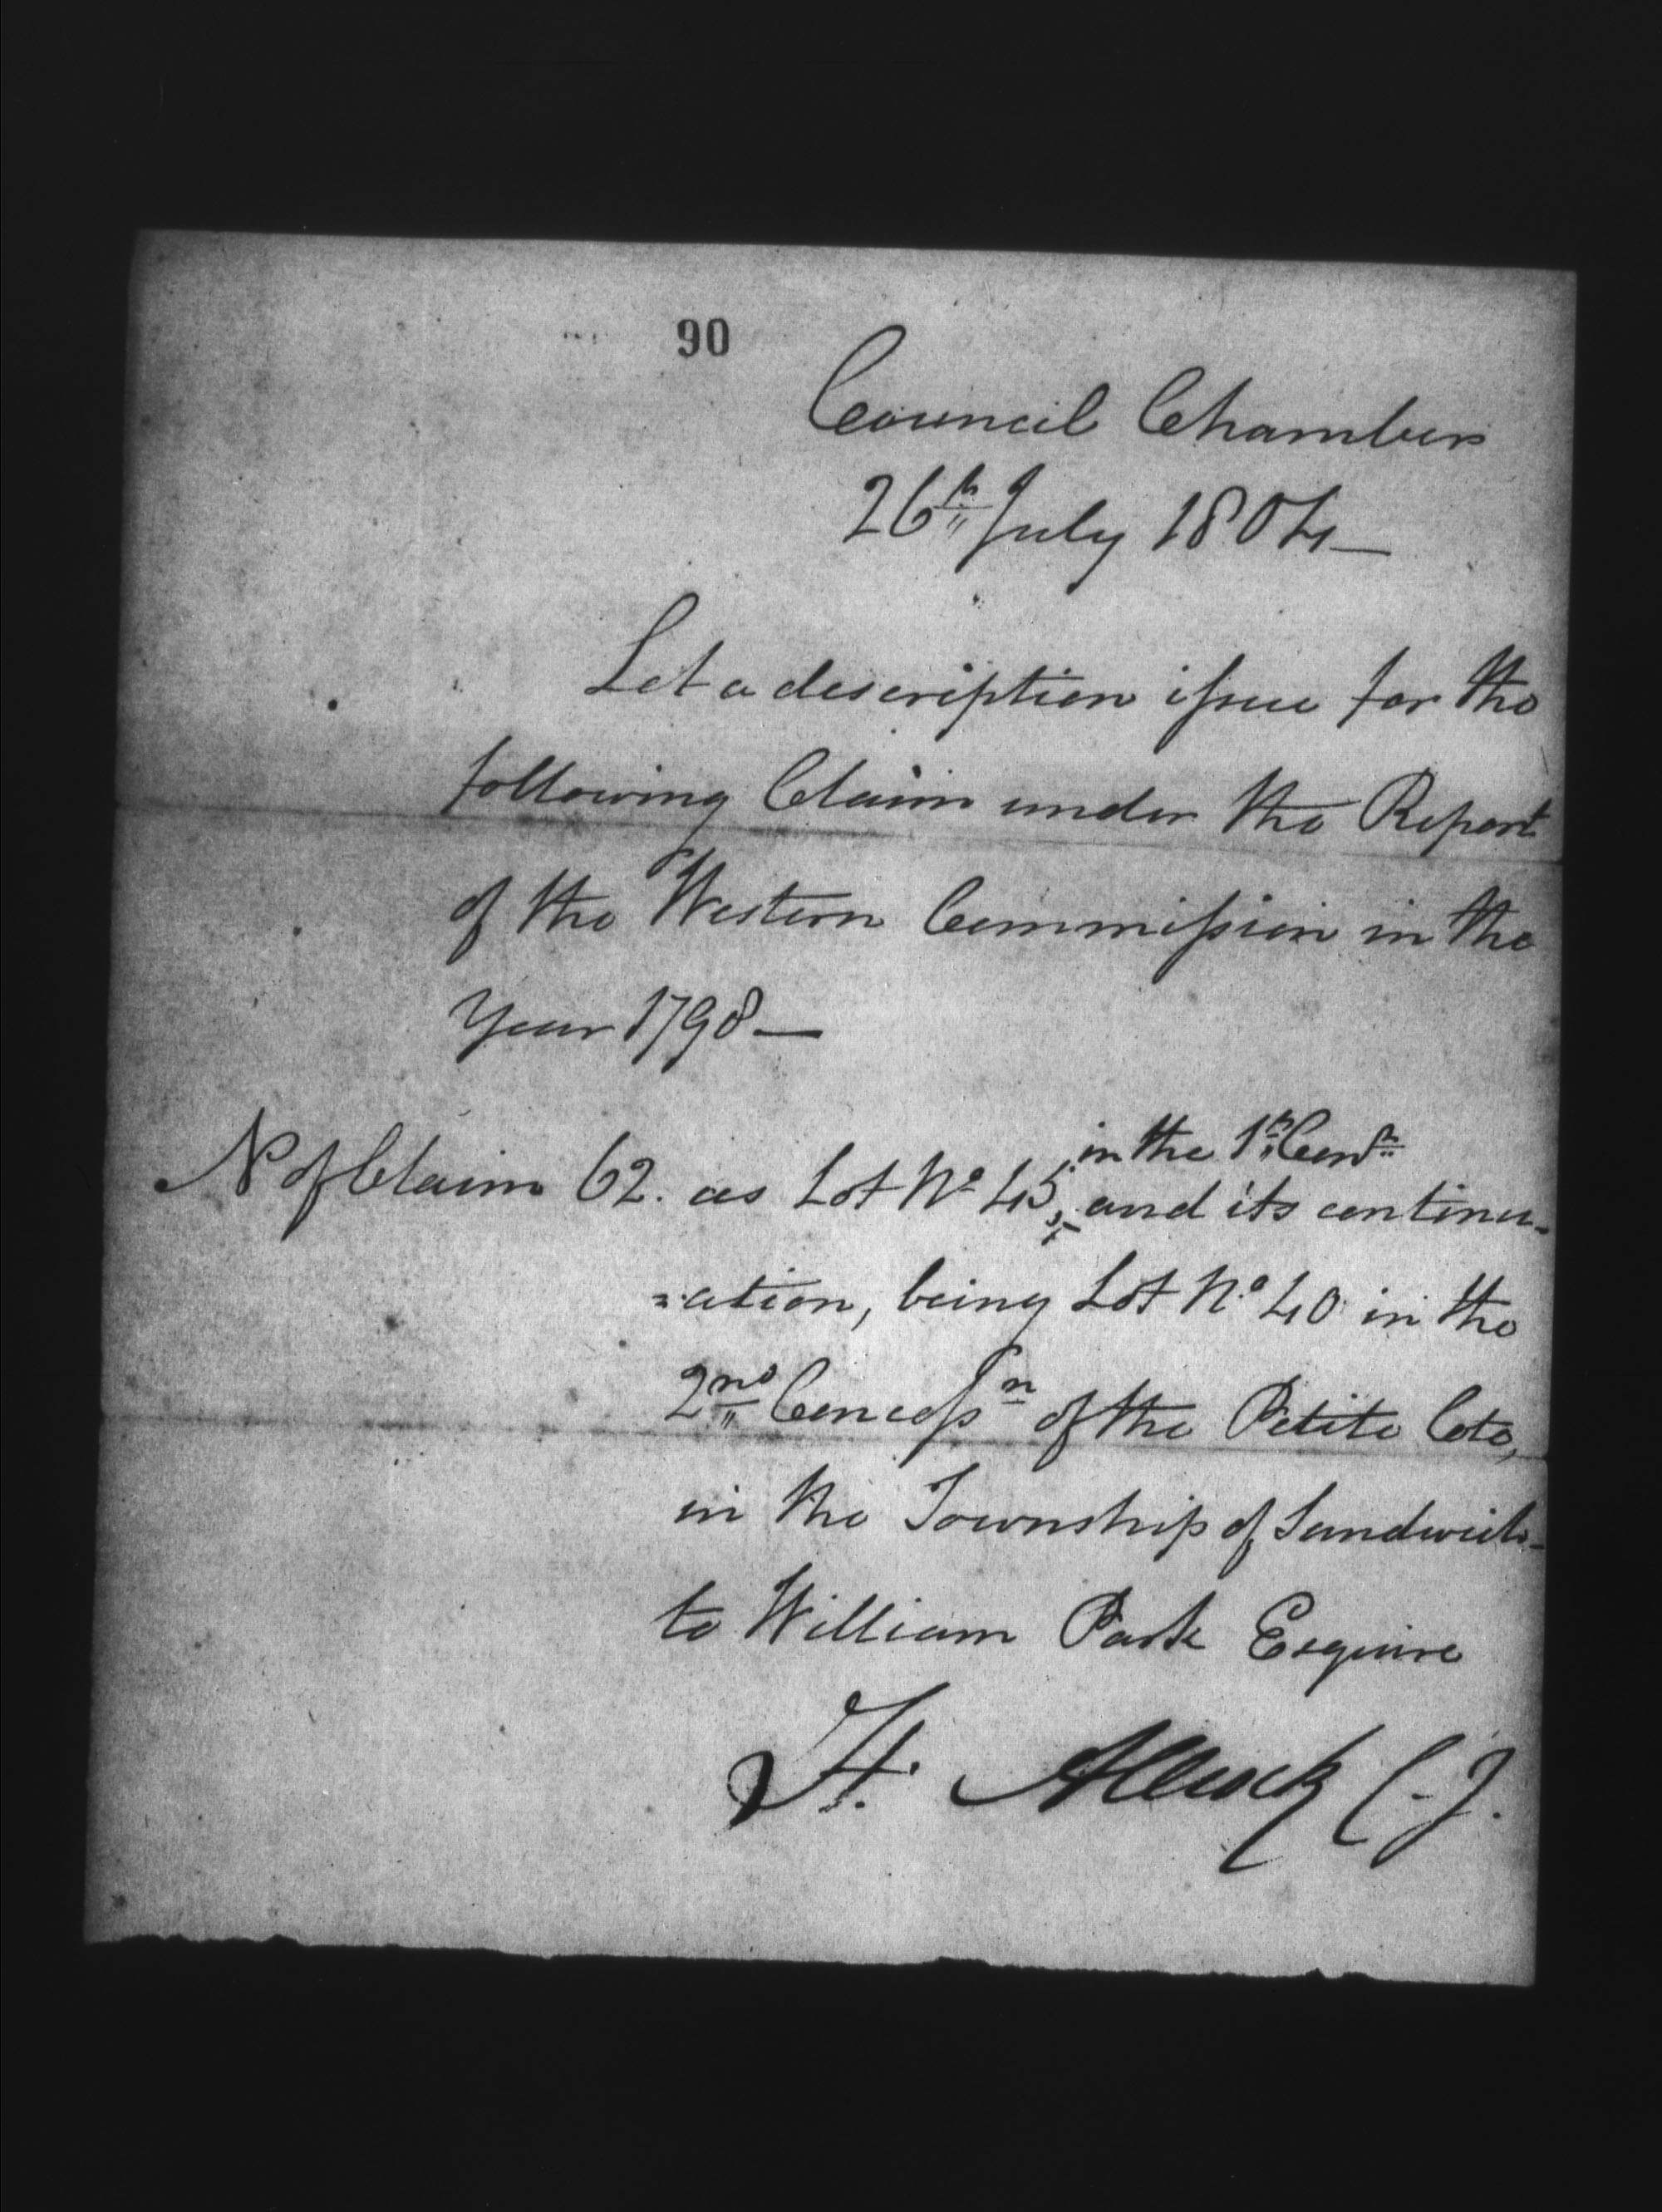 90
Council Chambers
26th July 1804—
Let a description issue for the
following Claim under the Report
of the Western Commission in the
Year 1798—
in the 1st Conn
No of Claim 62. as Lot No 45, and its continu-
-ation, being Lot No 40 in the
2nd Concessn of the Petite Cote,
in the Township of Sandwich-
to William Park Esquire
H. Allcock C.J.